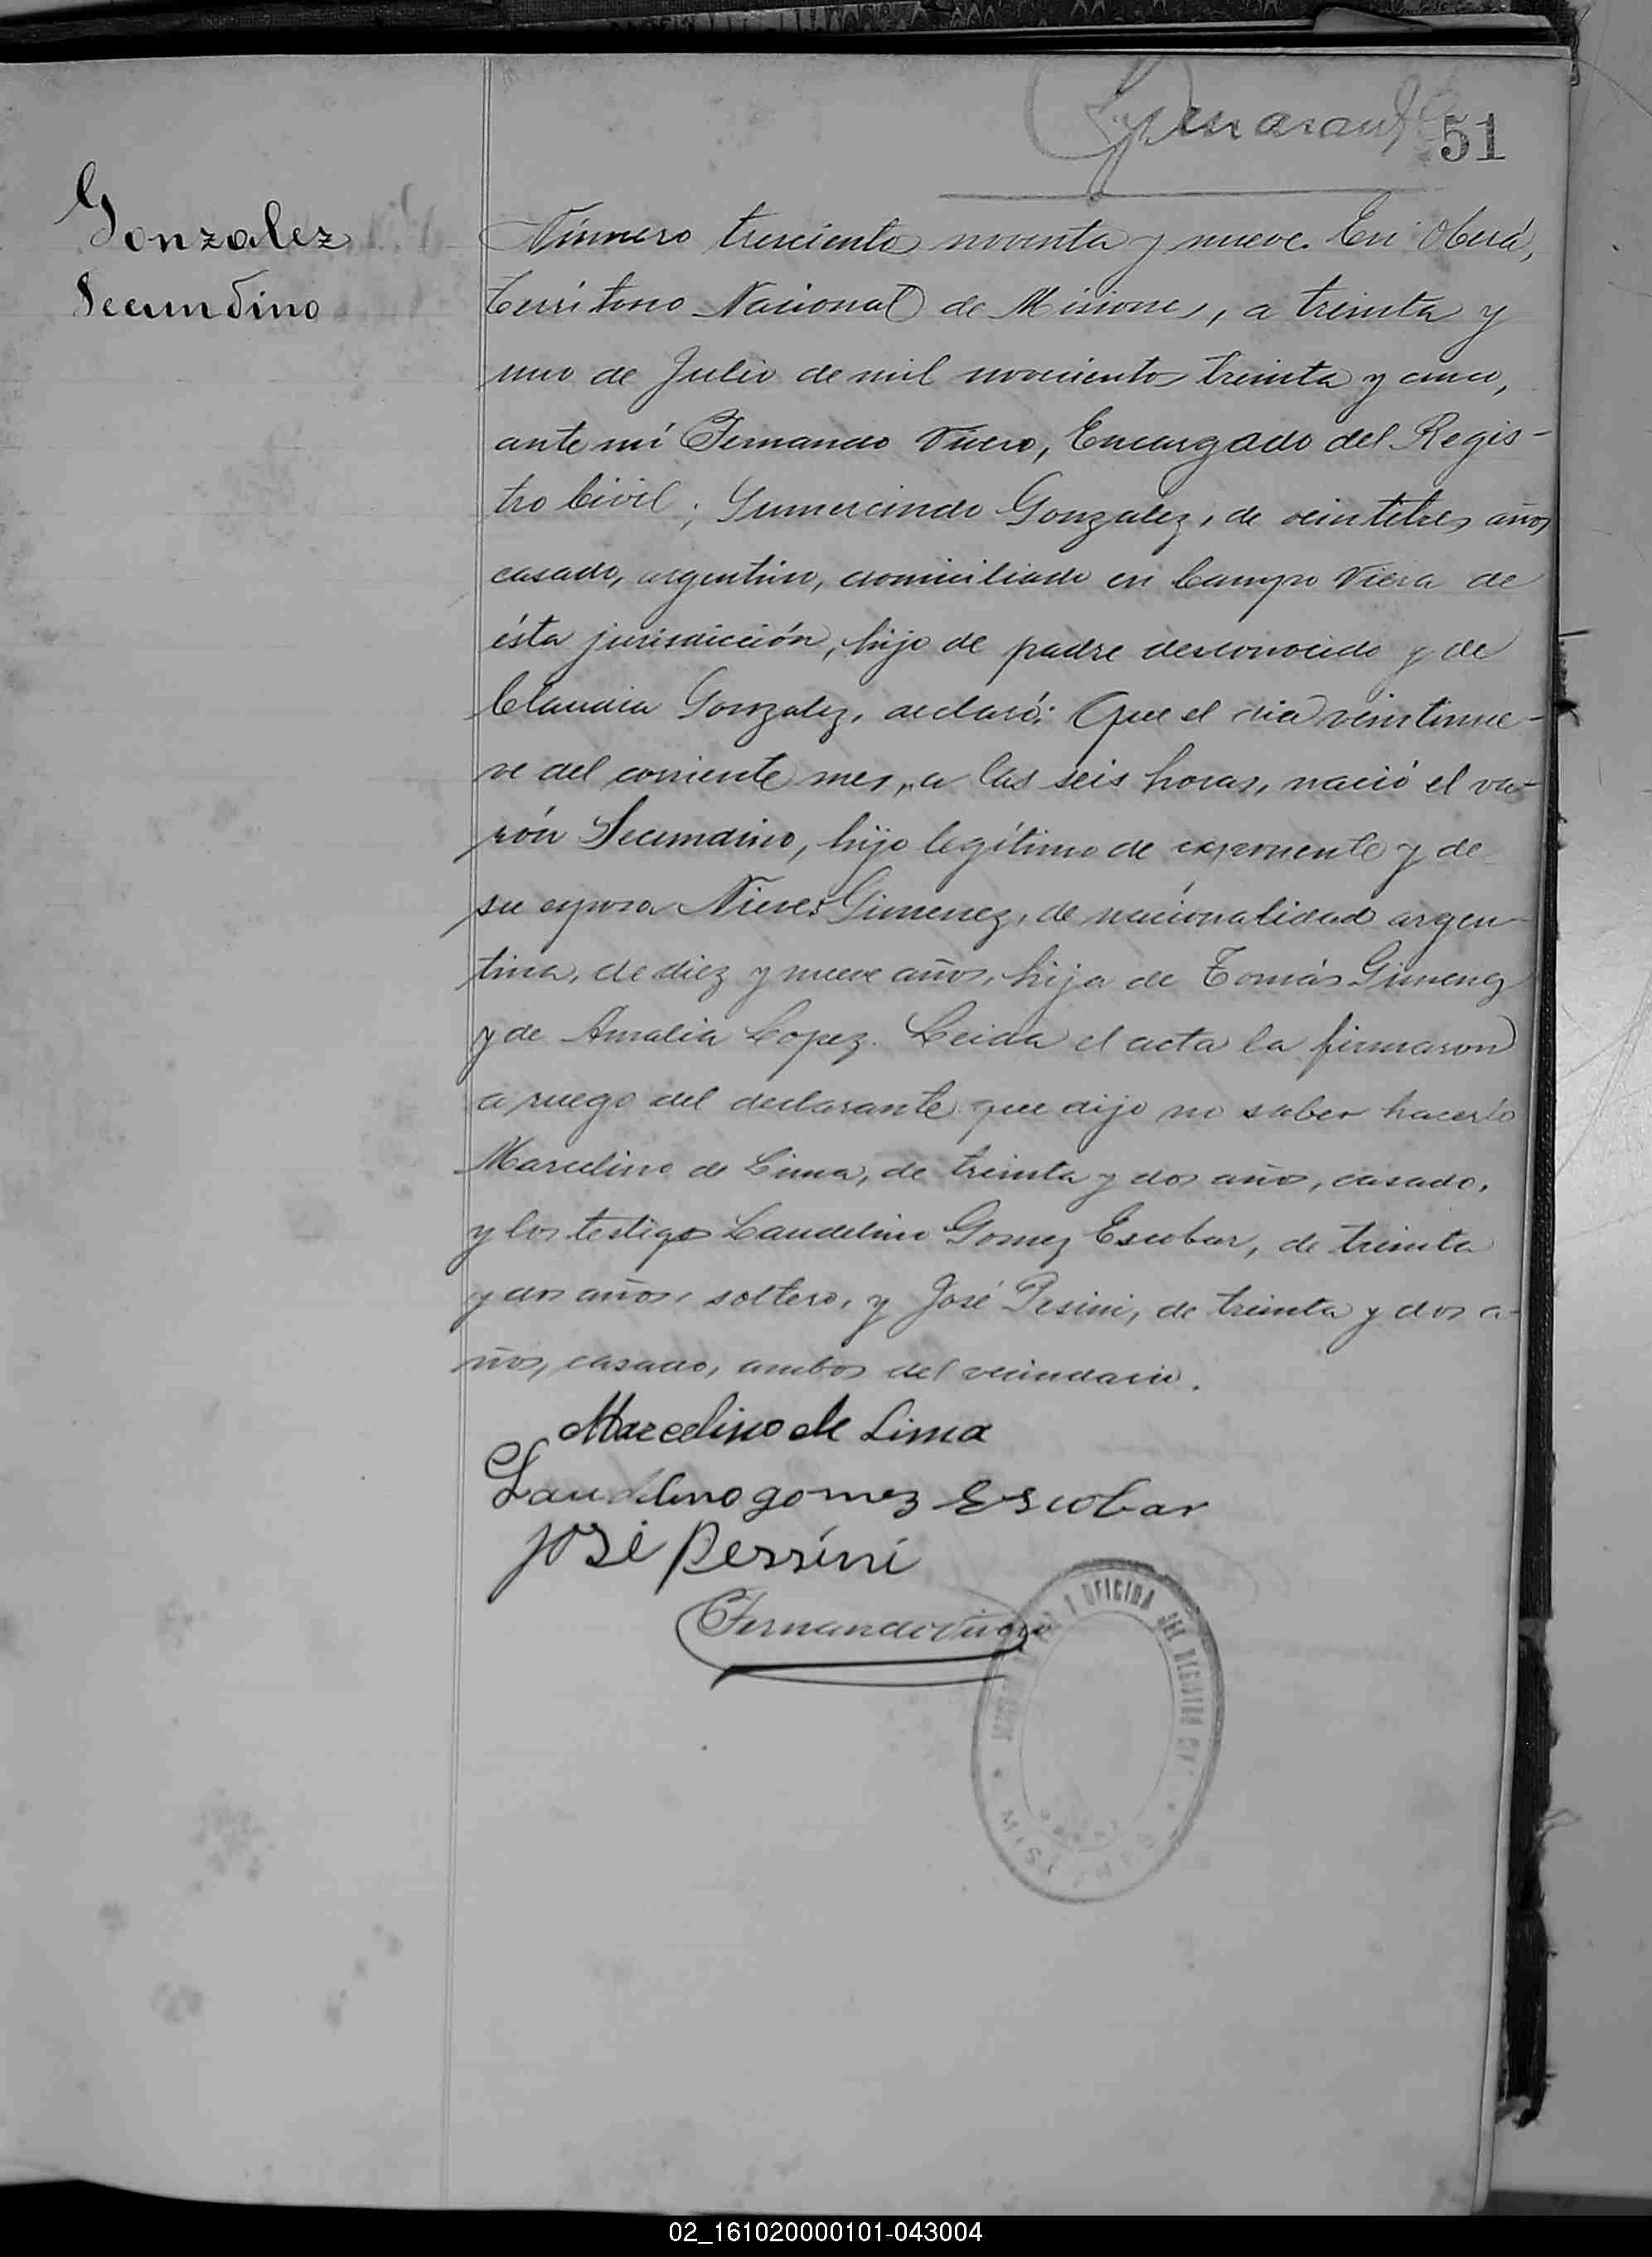 51
Gonzalez
Secundino
Número trescientos noventa y nueve. En Oberá,
Territorio Nacional de Misiones, a treinta y
uno de Julio de mil novecientos treinta y cinco,
ante mí Fernando Vivero, Encargado del Regis-
tro Civil; Gumercindo Gonzalez, de veintitres años,
casado, argentino, domiciliado en Campo Viera de
ésta jurisdicción, hijo de padre desconocido y de
Claudia Gonzalez, declaró: Que el dia veintinue-
ve del corriente mes, a las seis horas, nació el va-
rón Secundino, hijo legítimo de exponente y de
su esposa Nieves Gimenez, de nacionalidad argen-
tina, de diez y nueve años, hija de Tomás Gimenez
y de Amalia Lopez. Leida el acta la firmaron
a ruego del declarante que dijo no saber hacerlo
Marcelino de Lima, de treinta y dos años, casado,
y los testigos Laudelino Gomez Escobar, de treinta
y dos años, soltero, y José Pesini, de treinta y dos a-
ños, casado, ambos del vecindario.
Marcelino de Lima
Laudelino gomez Escobar
José Perrini
Fernando Vivero
OFICINA DEL REGISTRO
MISIONES
02_161020000101-043004